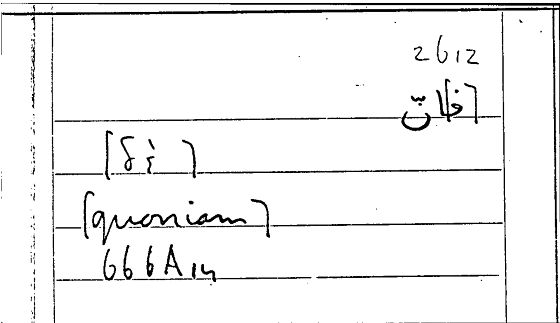 2612
[فلانّ
[δέ]
[quoniam]
666A14